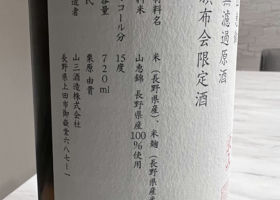 無濾過原酒
頒布会限定酒
材料名 米(長野県産)、米麹(長野県産米)
料米 山恵錦 長野県産100%使用
コール分 15度
容量 720ml
氏 栗原由貴
造者 山三酒造株式会社
長野県上田市御嶽堂六八七-一